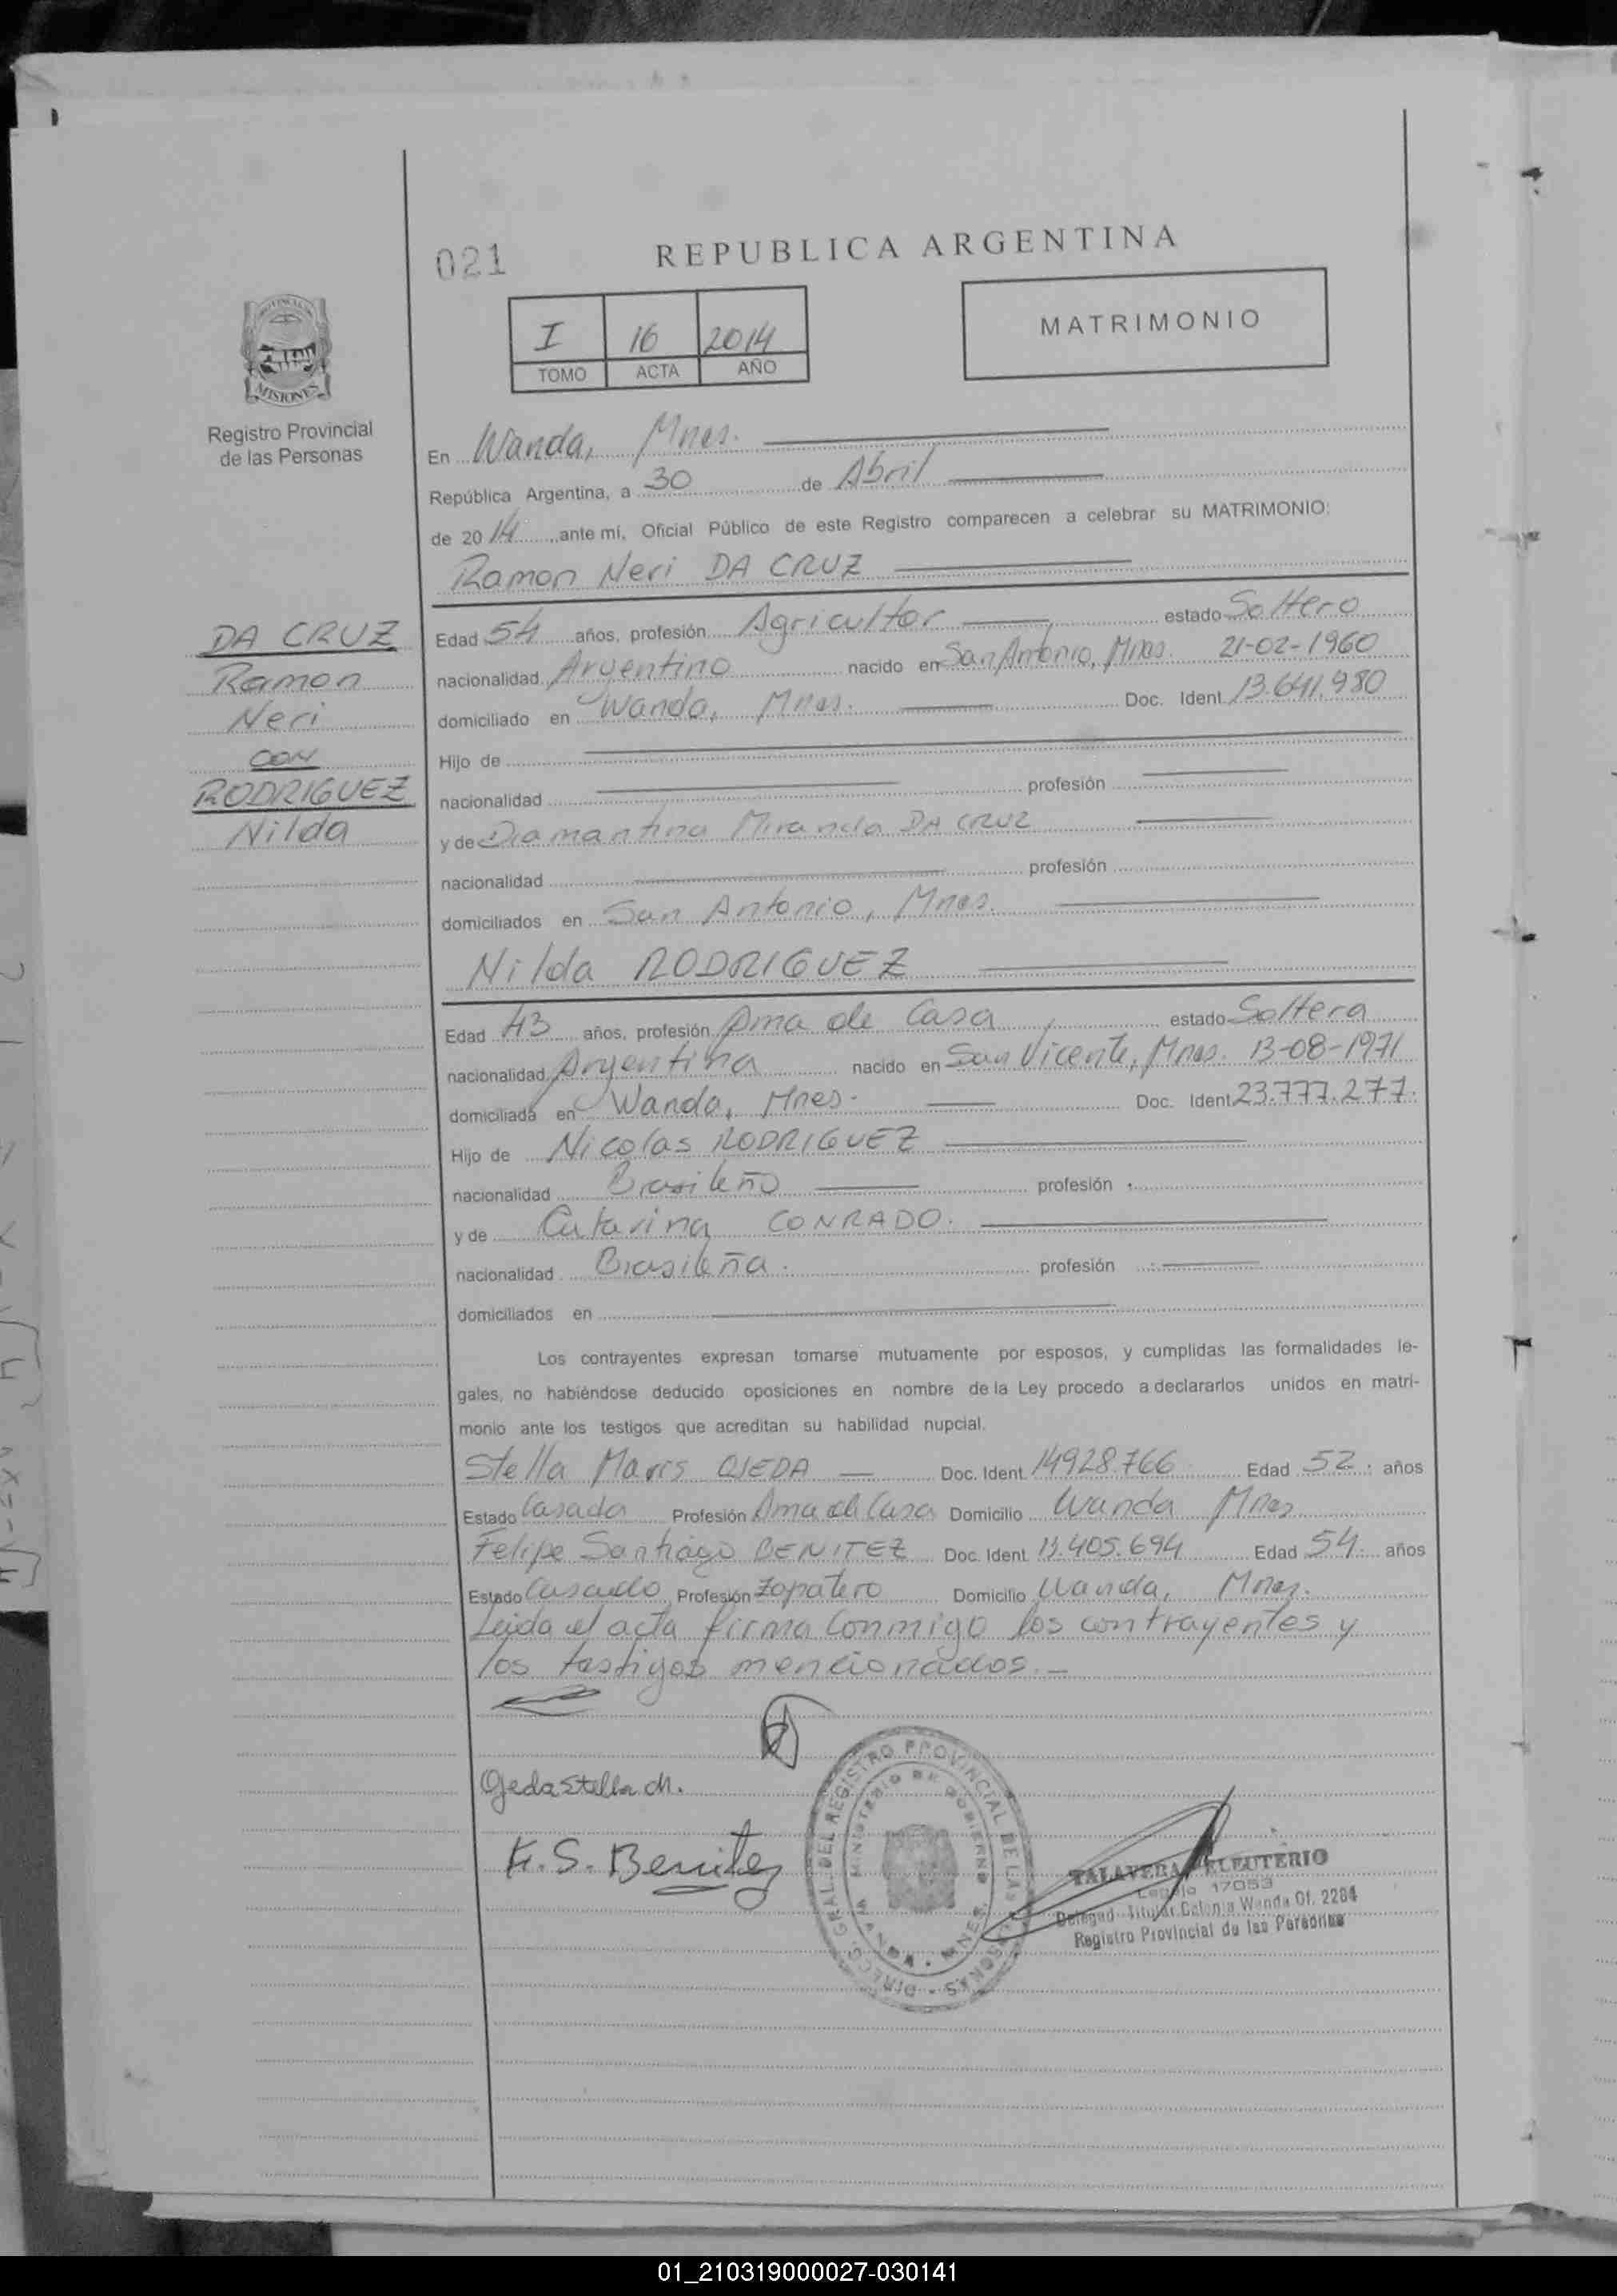 021
REPUBLICA ARGENTINA
I 16 2014
TOMO ACTA AÑO
MATRIMONIO
MISIONES
Registro Provincial
de las Personas
DA CRUZ
Ramon
Neri
CON
RODRIGUEZ
Nilda
En Wanda, Mnes.
República Argentina, a 30 de Abril
de 2014 ante mi, Oficial Público de este Registro comparecen a celebrar su MATRIMONIO:
Ramon Neri DA CRUZ
Edad 54 años, profesión Agricultor estado Soltero
nacionalidad Argentino nacido en San Antonio, Mnes. 21-02-1960
domiciliado en Wanda, Mnes. Doc. Ident. 13.641.980
Hijo de
nacionalidad profesión
y de Diamantina Miranda DA CRUZ
nacionalidad profesión
domiciliados en San Antonio, Mnes.
Nilda RODRIGUEZ
Edad 43 años, profesión Ama de Casa estado Soltera
nacionalidad Argentina nacido en San Vicente, Mnes. 13-08-1971
domiciliada en Wanda, Mnes. Doc. Ident. 23.777.277.
Hijo de Nicolas RODRIGUEZ
nacionalidad Brasileño profesión
y de Catarina CONRADO.
nacionalidad Brasileña. profesión
domiciliados en
Los contrayentes expresan tomarse mutuamente por esposos, y cumplidas las formalidades le-
gales, no habiéndose deducido oposiciones en nombre de la Ley procedo a declararlos unidos en matri-
monio ante los testigos que acreditan su habilidad nupcial.
Stella Maris OJEDA Doc. Ident. 14928.766 Edad 52 años
Estado Casada Profesión Ama de Casa Domicilio Wanda Mnes
Felipe Santiago BENITEZ Doc. Ident. 13.405.694 Edad 54 años
Estado Casado Profesión Zapatero Domicilio Wanda, Mnes.
Leida el acta firma conmigo los contrayentes y
los testigos mencionados.-
Ojeda Stella M.
F. S. Benitez
DIRECC. GRAL. DEL REGISTRO PROVINCIAL DE LAS PERSONAS
MINISTERIO DE GOBIERNO
WANDA MNES
TALAVERA ELEUTERIO
Legajo 17053
Delegad Titular Colonia Wanda Of. 2284
Registro Provincial de las Personas
01_210319000027-030141